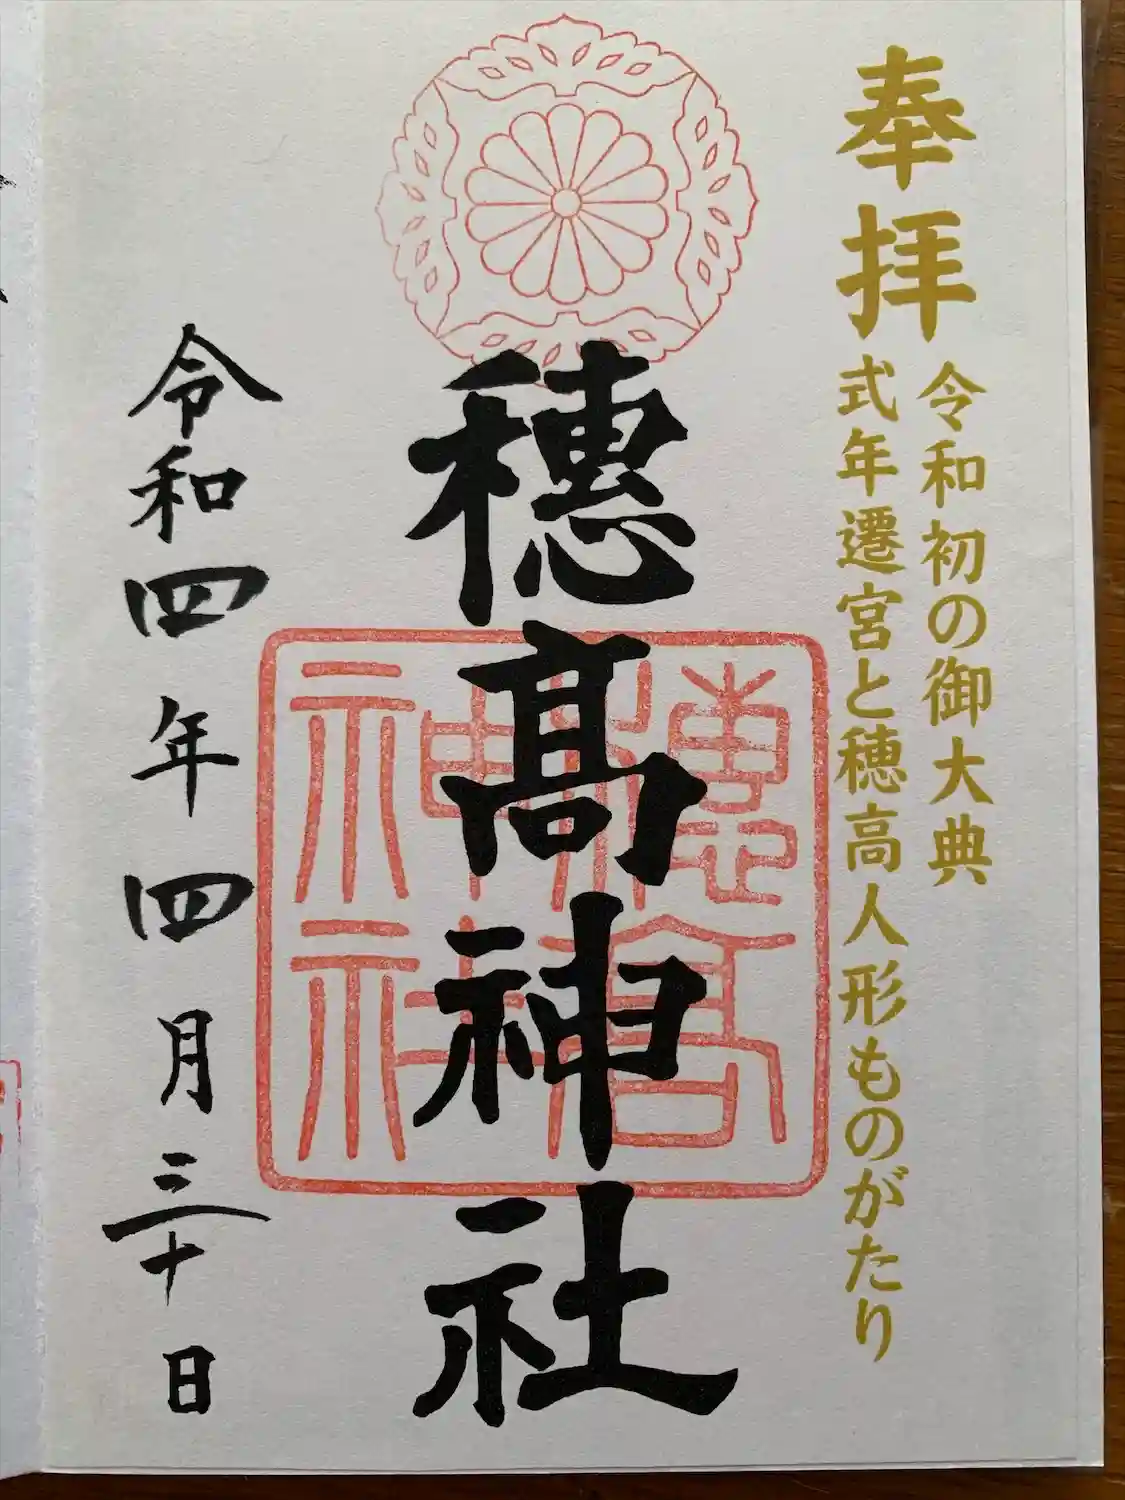 奉拝
令和初の御大典
式年遷宮と穂高人形ものがたり
穗髙神社
穗高
神社
令和四年四月三十日